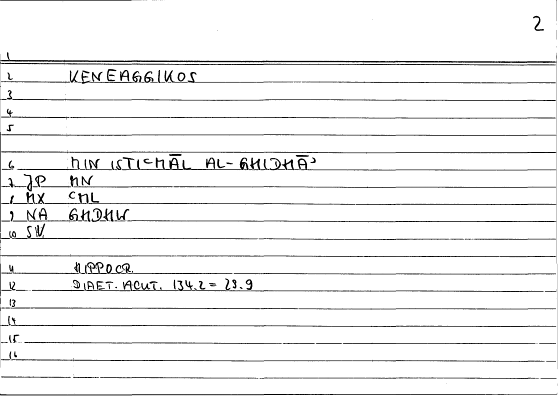 2
1
2 KENEAGGIKOS
3
4
5
6 MIN ISTIʿMĀL AL-GHIDHĀʾ
7 JP MN
8 MX ʿML
9 NA GHDHW
10 SV
11 HIPPOCR.
12 DIAET. ACUT. 134.2 = 23.9
13
14
15
16